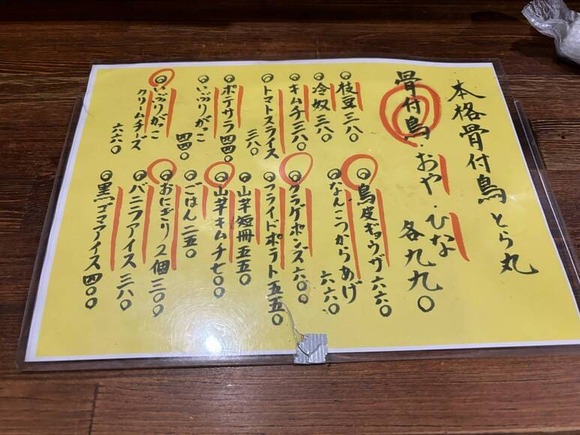 本格骨付鳥 とら丸
骨付鳥・おや・ひな
各九九〇
枝豆 三八〇
冷奴 三八〇
キムチ 三八〇
トマトスライス 三八〇
ポテサラ 四四〇
いぶりがっこ 四四〇
いぶりがっこクリームチーズ 六六〇
鳥皮ギョウザ 六六〇
なんこつからあげ 六六〇
クラゲポンズ 六〇〇
フライドポテト 五五〇
山芋短冊 五五〇
山芋キムチ 七〇〇
ごはん 二五〇
おにぎり 2個 三〇〇
バニラアイス 三八〇
黒ゴマアイス 四〇〇